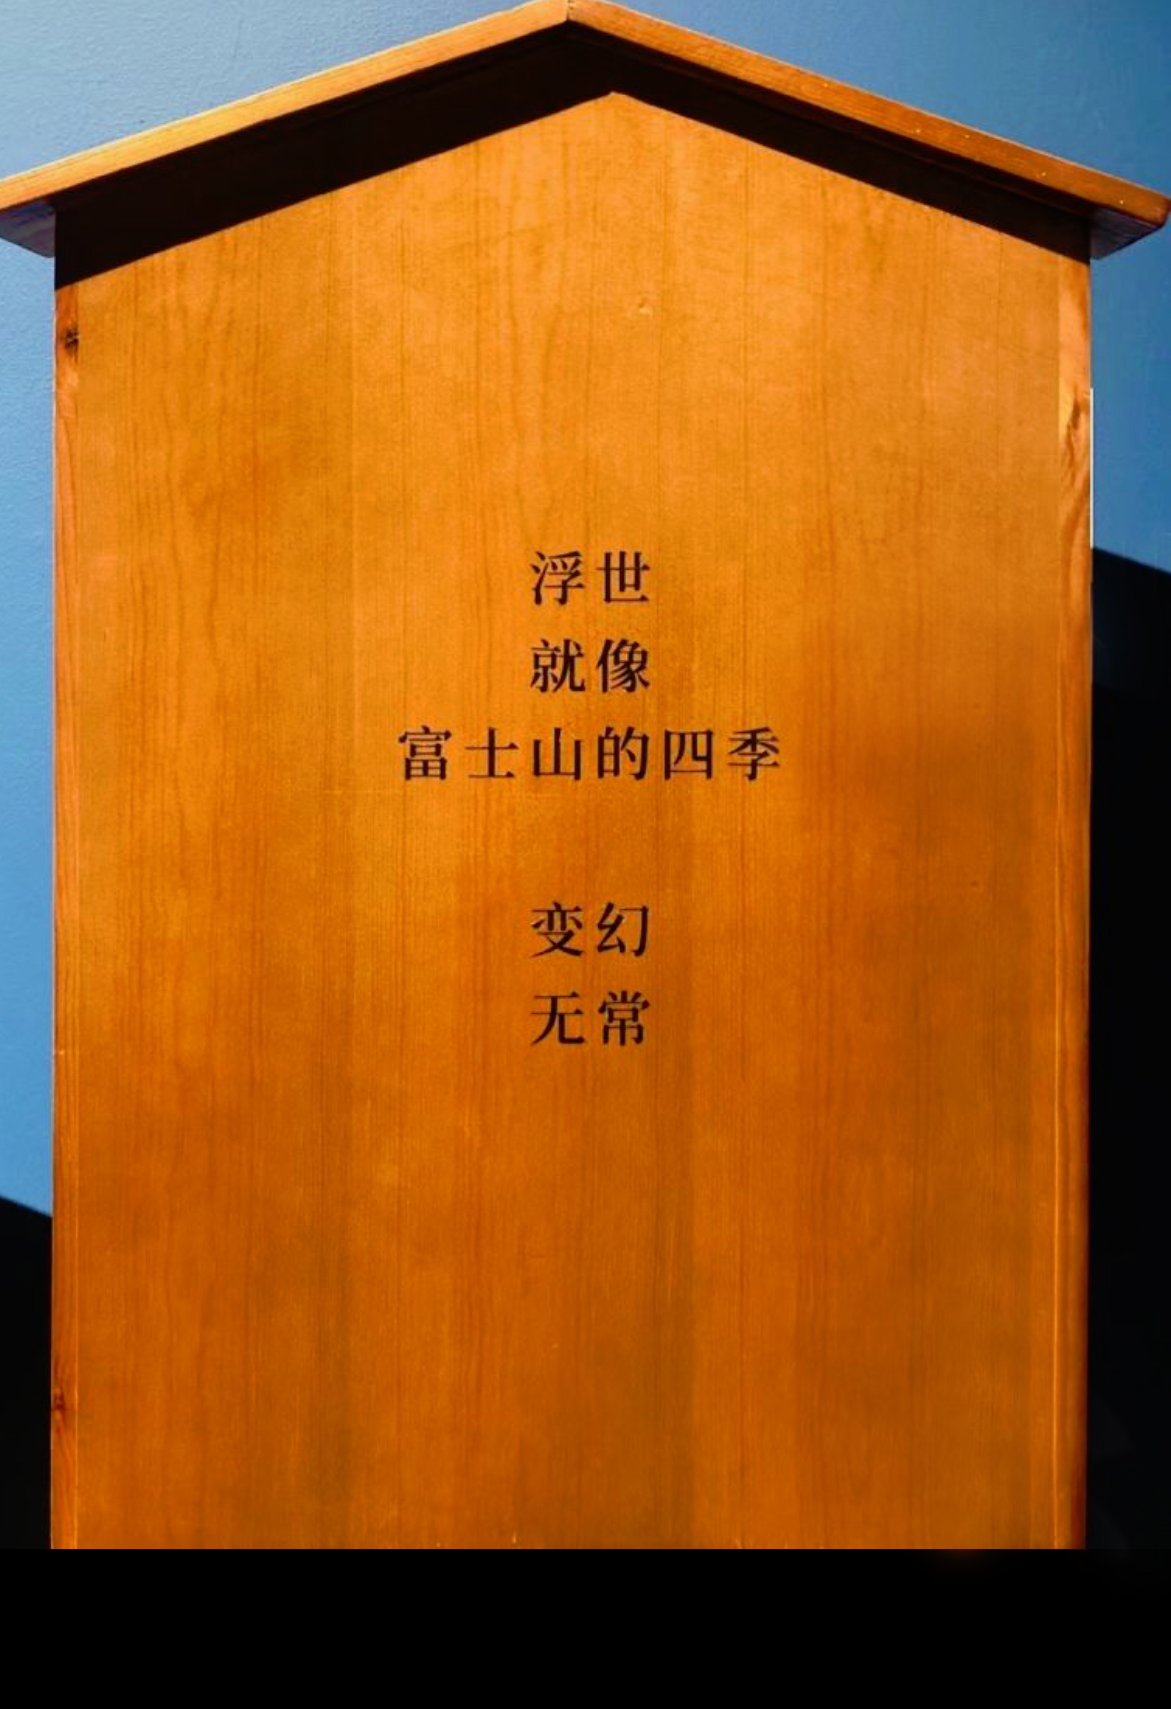 浮世
就像
富士山的四季
变幻
无常